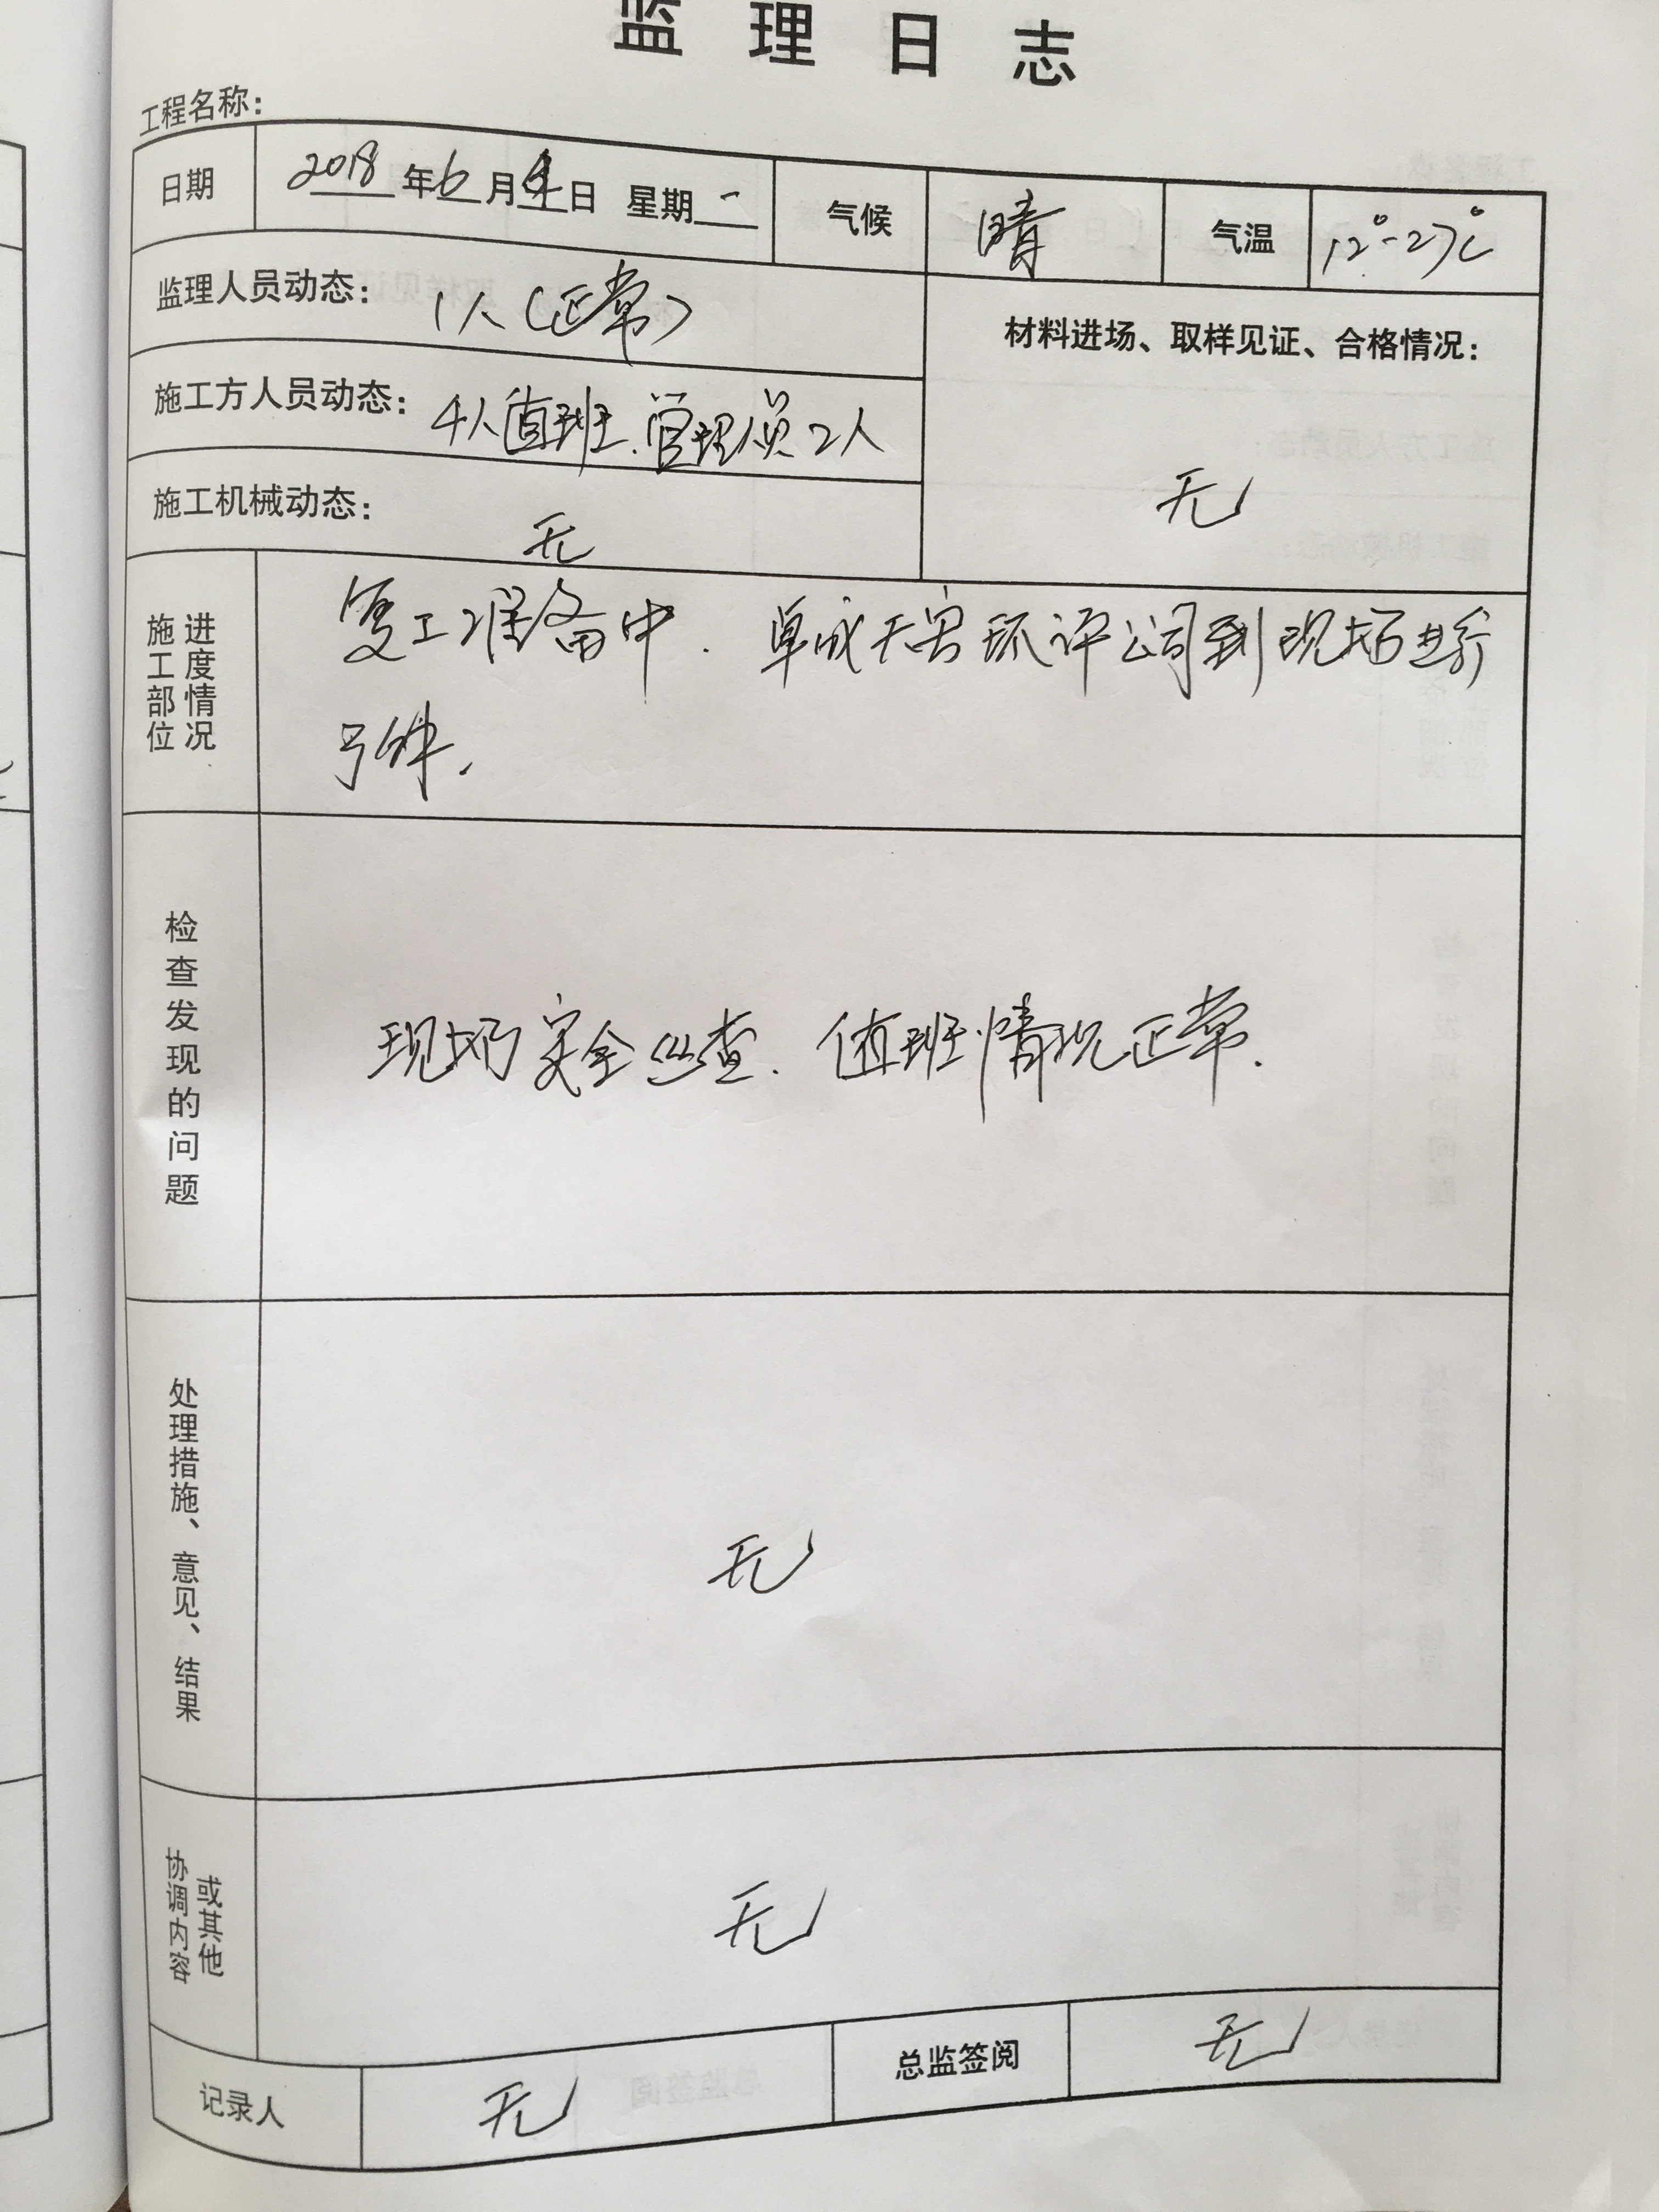 监理日志
工程名称：
日期 2018年6月4日 星期一 气候 晴 气温 12°-27℃
监理人员动态： 1人（正常）
材料进场、取样见证、合格情况：
施工方人员动态： 4人值班、管理员2人
无
施工机械动态： 无
施工部位
进度情况
复工准备中. 环评公司到现场进行
检查发现的问题
现场安全巡查. 值班情况正常.
处理措施、意见、结果
无
协调内容
或其他
无
记录人 无 总监签阅 无